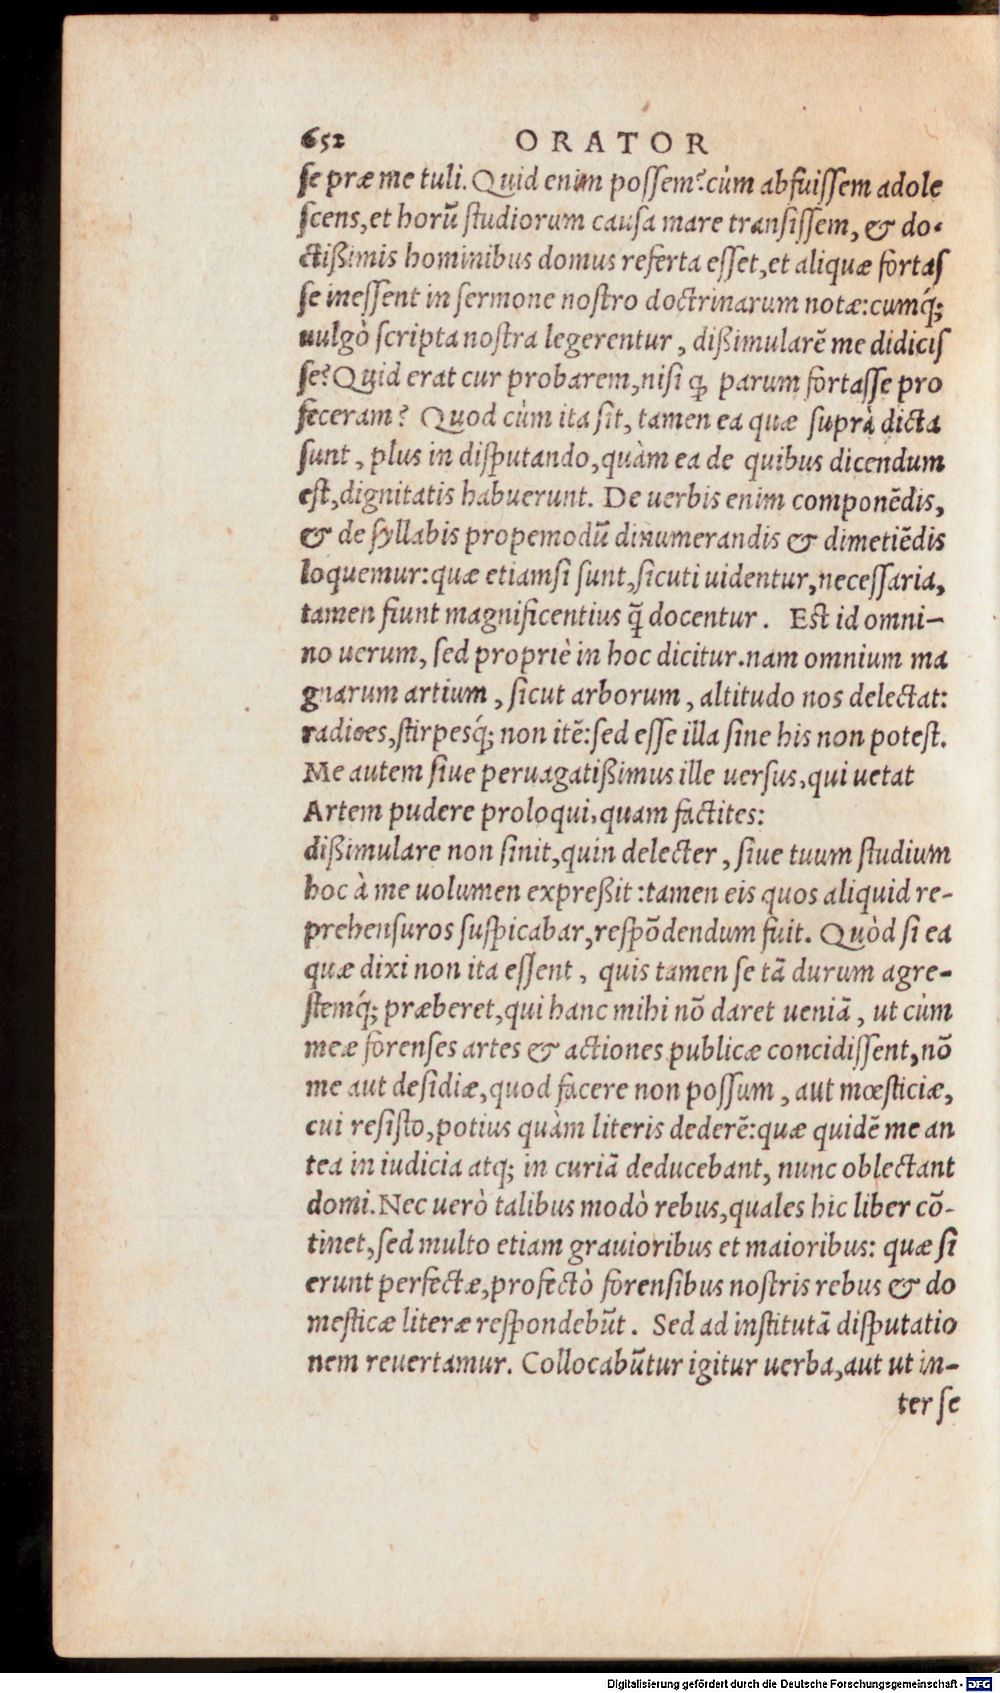 652 ORATOR
se præ me tuli. Quid enim possem? cùm abfuissem adole
scens, et horũ studiorum causa mare transissem, & do-
ctißimis hominibus domus referta esset, et aliquæ fortas
se inessent in sermone nostro doctrinarum notæ: cumq́;
uulgò scripta nostra legerentur, dißimularẽ me didicis
se? Quid erat cur probarem, nisi ꝙ parum fortasse pro
feceram? Quod cùm ita sit, tamen ea quæ suprà dicta
sunt, plus in disputando, quàm ea de quibus dicendum
est, dignitatis habuerunt. De uerbis enim componẽdis,
& de syllabis propemodũ dinumerandis & dimetiẽdis
loquemur: quæ etiamsi sunt, sicuti uidentur, necessaria,
tamen fiunt magnificentius q̃ docentur. Est id omni-
no uerum, sed propriè in hoc dicitur. nam omnium ma
gnarum artium, sicut arborum, altitudo nos delectat:
radices, stirpesq́; non itẽ: sed esse illa sine his non potest.
Me autem siue peruagatißimus ille uersus, qui uetat
Artem pudere proloqui, quam factites:
dißimulare non sinit, quin delecter, siue tuum studium
hoc à me uolumen expreßit: tamen eis quos aliquid re-
prehensuros suspicabar, respõdendum fuit. Quòd si ea
quæ dixi non ita essent, quis tamen se tã durum agre-
stemq́; præberet, qui hanc mihi nõ daret ueniã, ut cùm
meæ forenses artes & actiones publicæ concidissent, nõ
me aut desidiæ, quod facere non possum, aut mœsticiæ,
cui resisto, potius quàm literis dederẽ: quæ quidẽ me an
tea in iudicia atq; in curiã deducebant, nunc oblectant
domi. Nec uerò talibus modò rebus, quales hic liber cõ-
tinet, sed multo etiam grauioribus et maioribus: quæ si
erunt perfectæ, profectò forensibus nostris rebus & do
mesticæ literæ respondebũt. Sed ad institutã disputatio
nem reuertamur. Collocabũtur igitur uerba, aut ut in-
ter se
Digitalisierung gefördert durch die Deutsche Forschungsgemeinschaft - DFG